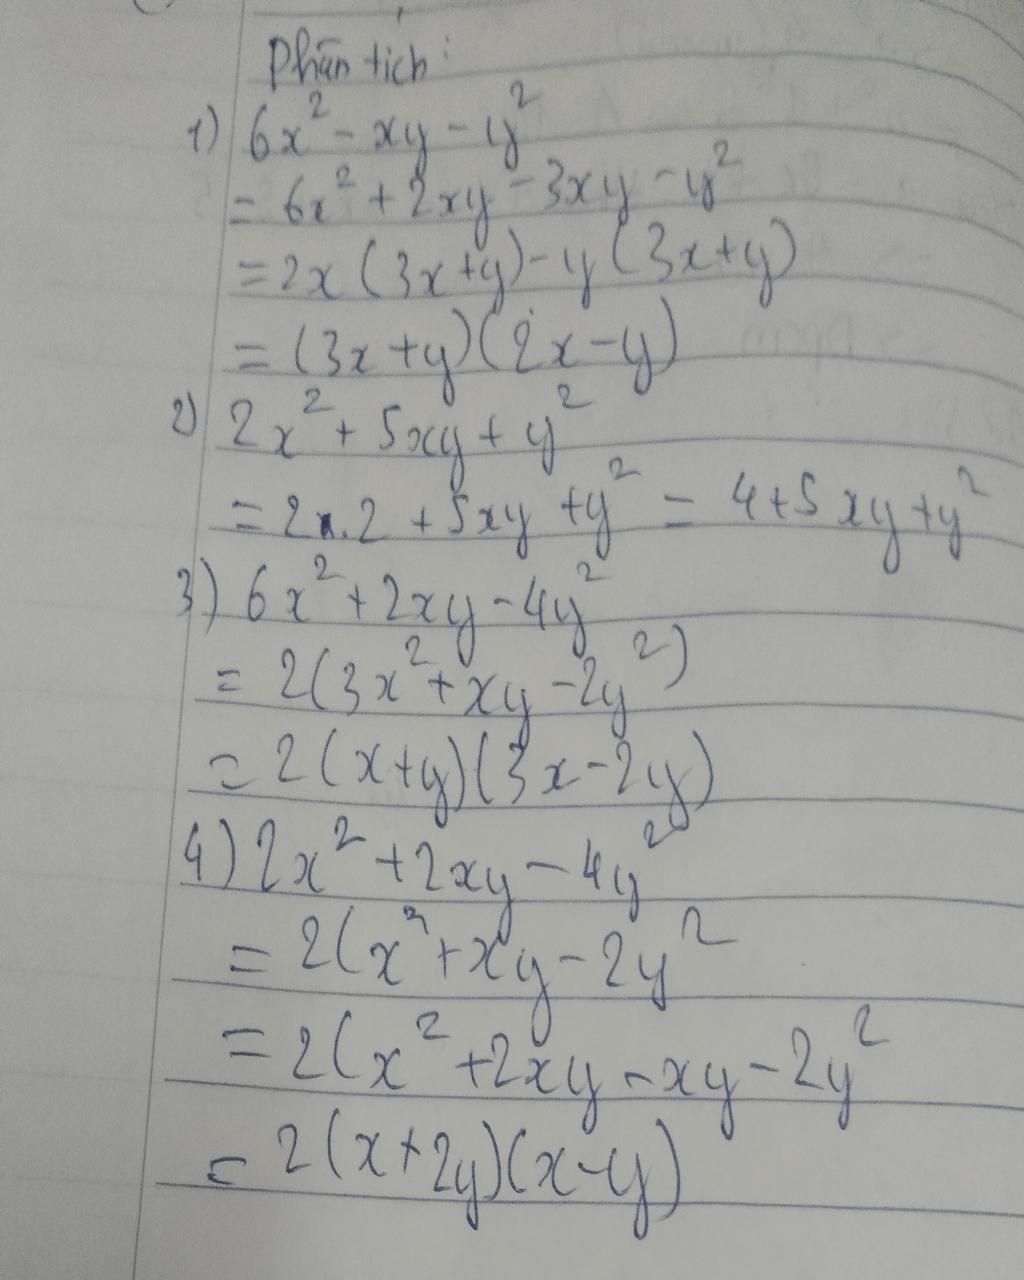 Phân tích:
1) 6x² - xy - y²
= 6x² + 2xy - 3xy - y²
= 2x (3x+y) - y (3x+y)
= (3x+y)(2x-y)
2) 2x² + 5xy + y²
= 2x.2 + 5xy + y² = 4+5xy+y²
3) 6x² + 2xy - 4y²
= 2(3x² + xy - 2y²)
= 2(x+y)(3x-2y)
4) 2x² + 2xy - 4y²
= 2(x² + xy - 2y²
= 2(x² + 2xy - xy - 2y²
= 2(x+2y)(x-y)